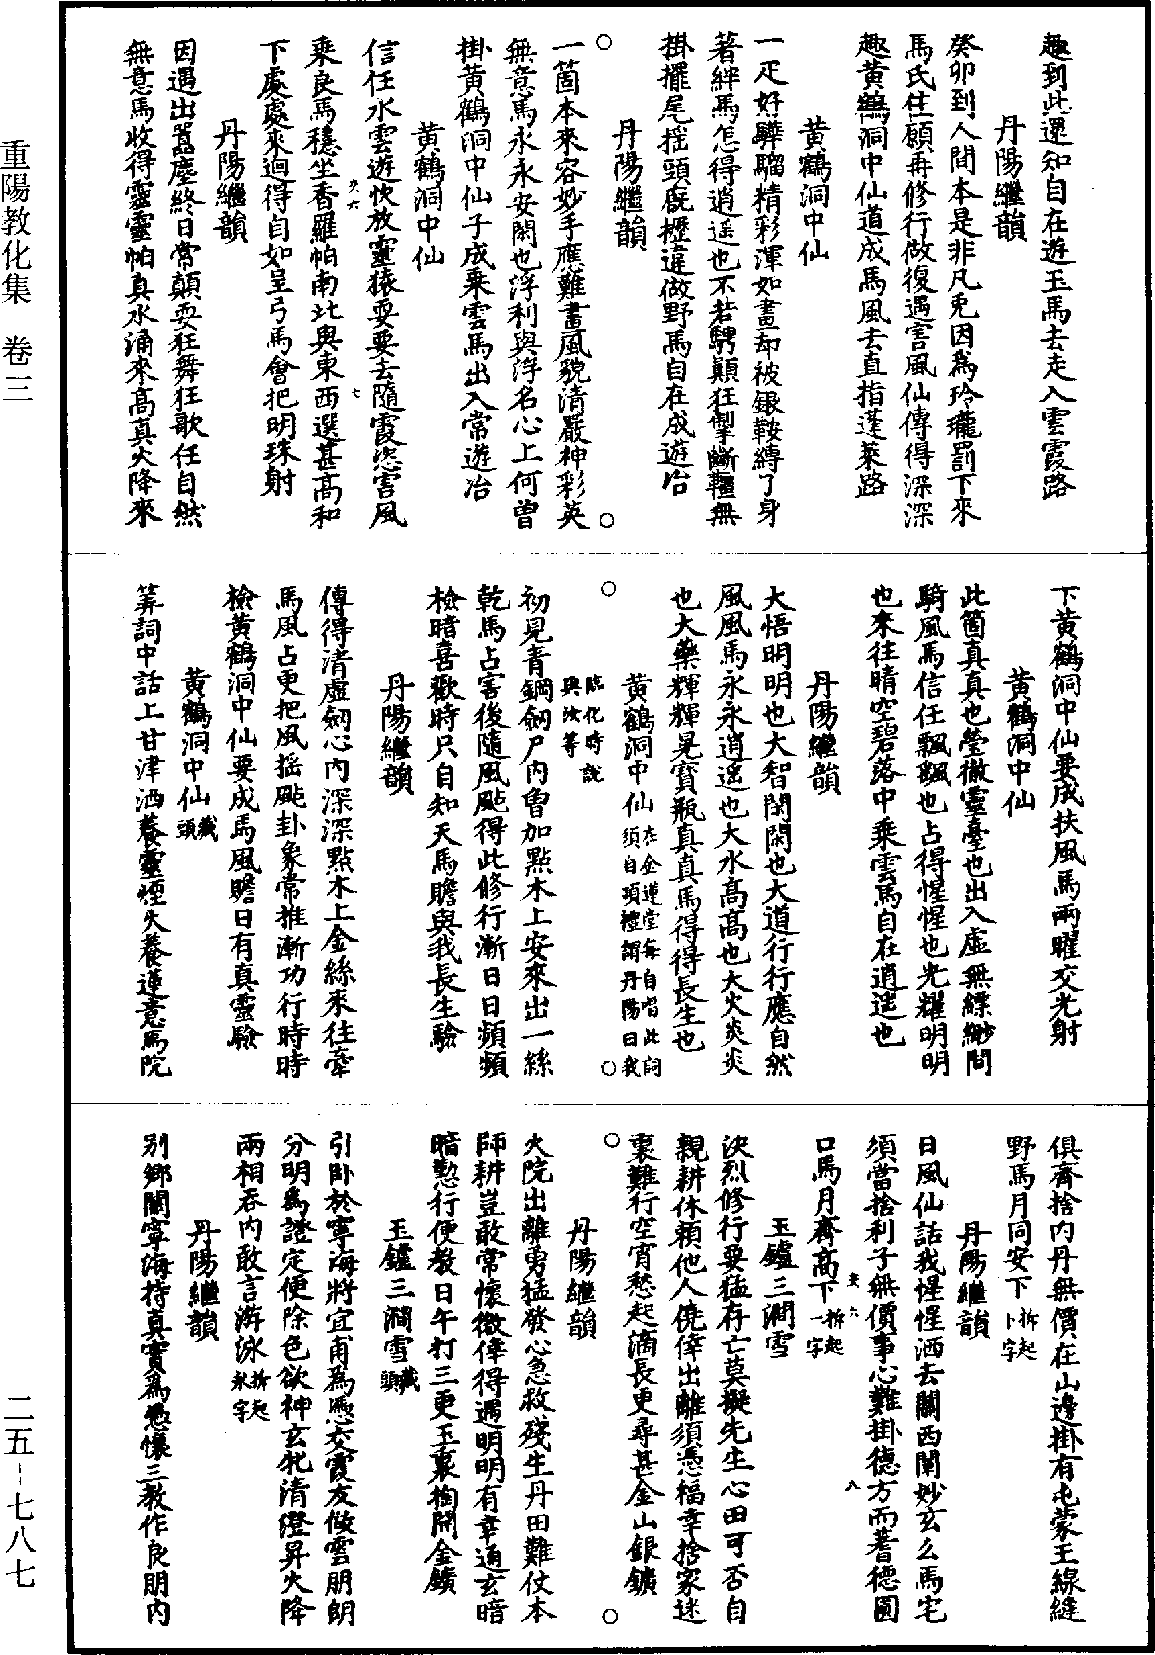 趣到此還知自在遊玉馬去走入雲霞路
丹陽繼韻
癸卯到人間本是非凡兎因爲玲瓏罰下來
馬氏住願再修行做復遇害風仙傳得深深
趣黃鶴洞中仙道成馬風去直指蓬萊路
黃鶴洞中仙
一疋好驊騮精彩渾如畫却被銀鞍縛了身
著絆馬怎得逍遥也不若騁顛狂掣斷韁無
掛擺尾摇頭廐櫪違做野馬自在成遊冶
丹陽繼韻
○一箇本來容妙手應難畫風貌清嚴神彩英○
無意馬永永安閑也浮利與浮名心上何曾
掛黃鶴洞中仙子成乘雲馬出入常遊冶
黃鶴洞中仙
信任水雲遊快放靈猿耍要去隨霞恣害風
叐六 七
乘良馬穩坐香羅帕南北與東西選甚高和
下處處來迴得自如呈弓馬會把明珠射
丹陽繼韻
因遇出囂塵終日常顛耍狂舞狂歌任自然
無意馬收得靈靈帕真水涌來高真火降來
下黃鶴洞中仙要成扶風馬兩曜交光射
黃鶴洞中仙
此箇真真也瑩徹靈臺也出入虛無縹緲間
騎風馬信任飄飄也占得惺惺也光耀明明
也來往晴空碧落中乘雲馬自在逍遥也
丹陽繼韻
大悟明明也大智閑閑也大道行行應自然
風風馬永永逍遥也大水高高也大火炎炎
也大藥輝輝晃寶瓶真真馬得得長生也
○黃鶴洞中仙在金蓮堂每自唱此詞須自項禮謂丹陽曰我○
臨化時說
與汝等
初見青鋼劒尸內曾加點木上安來出一絲
乾馬占害後隨風颭得此修行漸日日頻頻
檢暗喜歡時只自知天馬贍與我長生驗
丹陽繼韻
傳得清虛劒心內深深點木上金絲來往牽
馬風占更把風摇颭卦象常推漸功行時時
檢黃鶴洞中仙要成馬風贍日有真靈驗
黃鶴洞中仙藏頭
筭詞中話上甘津洒養靈煙火養蓮意馬院
俱齊捨內丹無價在山邊掛有屯蒙王線縫
野馬月同安下拆起卜字
丹陽繼韻
日風仙話我惺惺洒去關西闡妙玄么馬宅
須當捨利子無價事心難掛德方而著德圓
叐六 八
口馬月齊高下拆起一字
玉鑪三澗雪
決烈修行要猛存亡莫擬先生心田可否自
親耕休賴他人僥倖出離須憑福幸捨家迷
○裏難行空宵愁起滴長更尋甚金山銀鑛○
丹陽繼韻
火院出離勇猛發心急救殘生丹田難仗本
師耕豈敢常懷徼倖得遇明明有幸通玄暗
暗懃行便教日午打三更玉裏掏開金鑛
玉鑪三澗雪藏頭
引卧於寧海將宜甫爲憑交霞友做雲朋朗
分明爲證定便除色欲神玄牝清澄昇火降
兩相吞內敢言游泳拆起水字
丹陽繼韻
別鄉關寧海持真實爲憑懷三教作良朋內
重陽教化集 卷三
二五-七八七